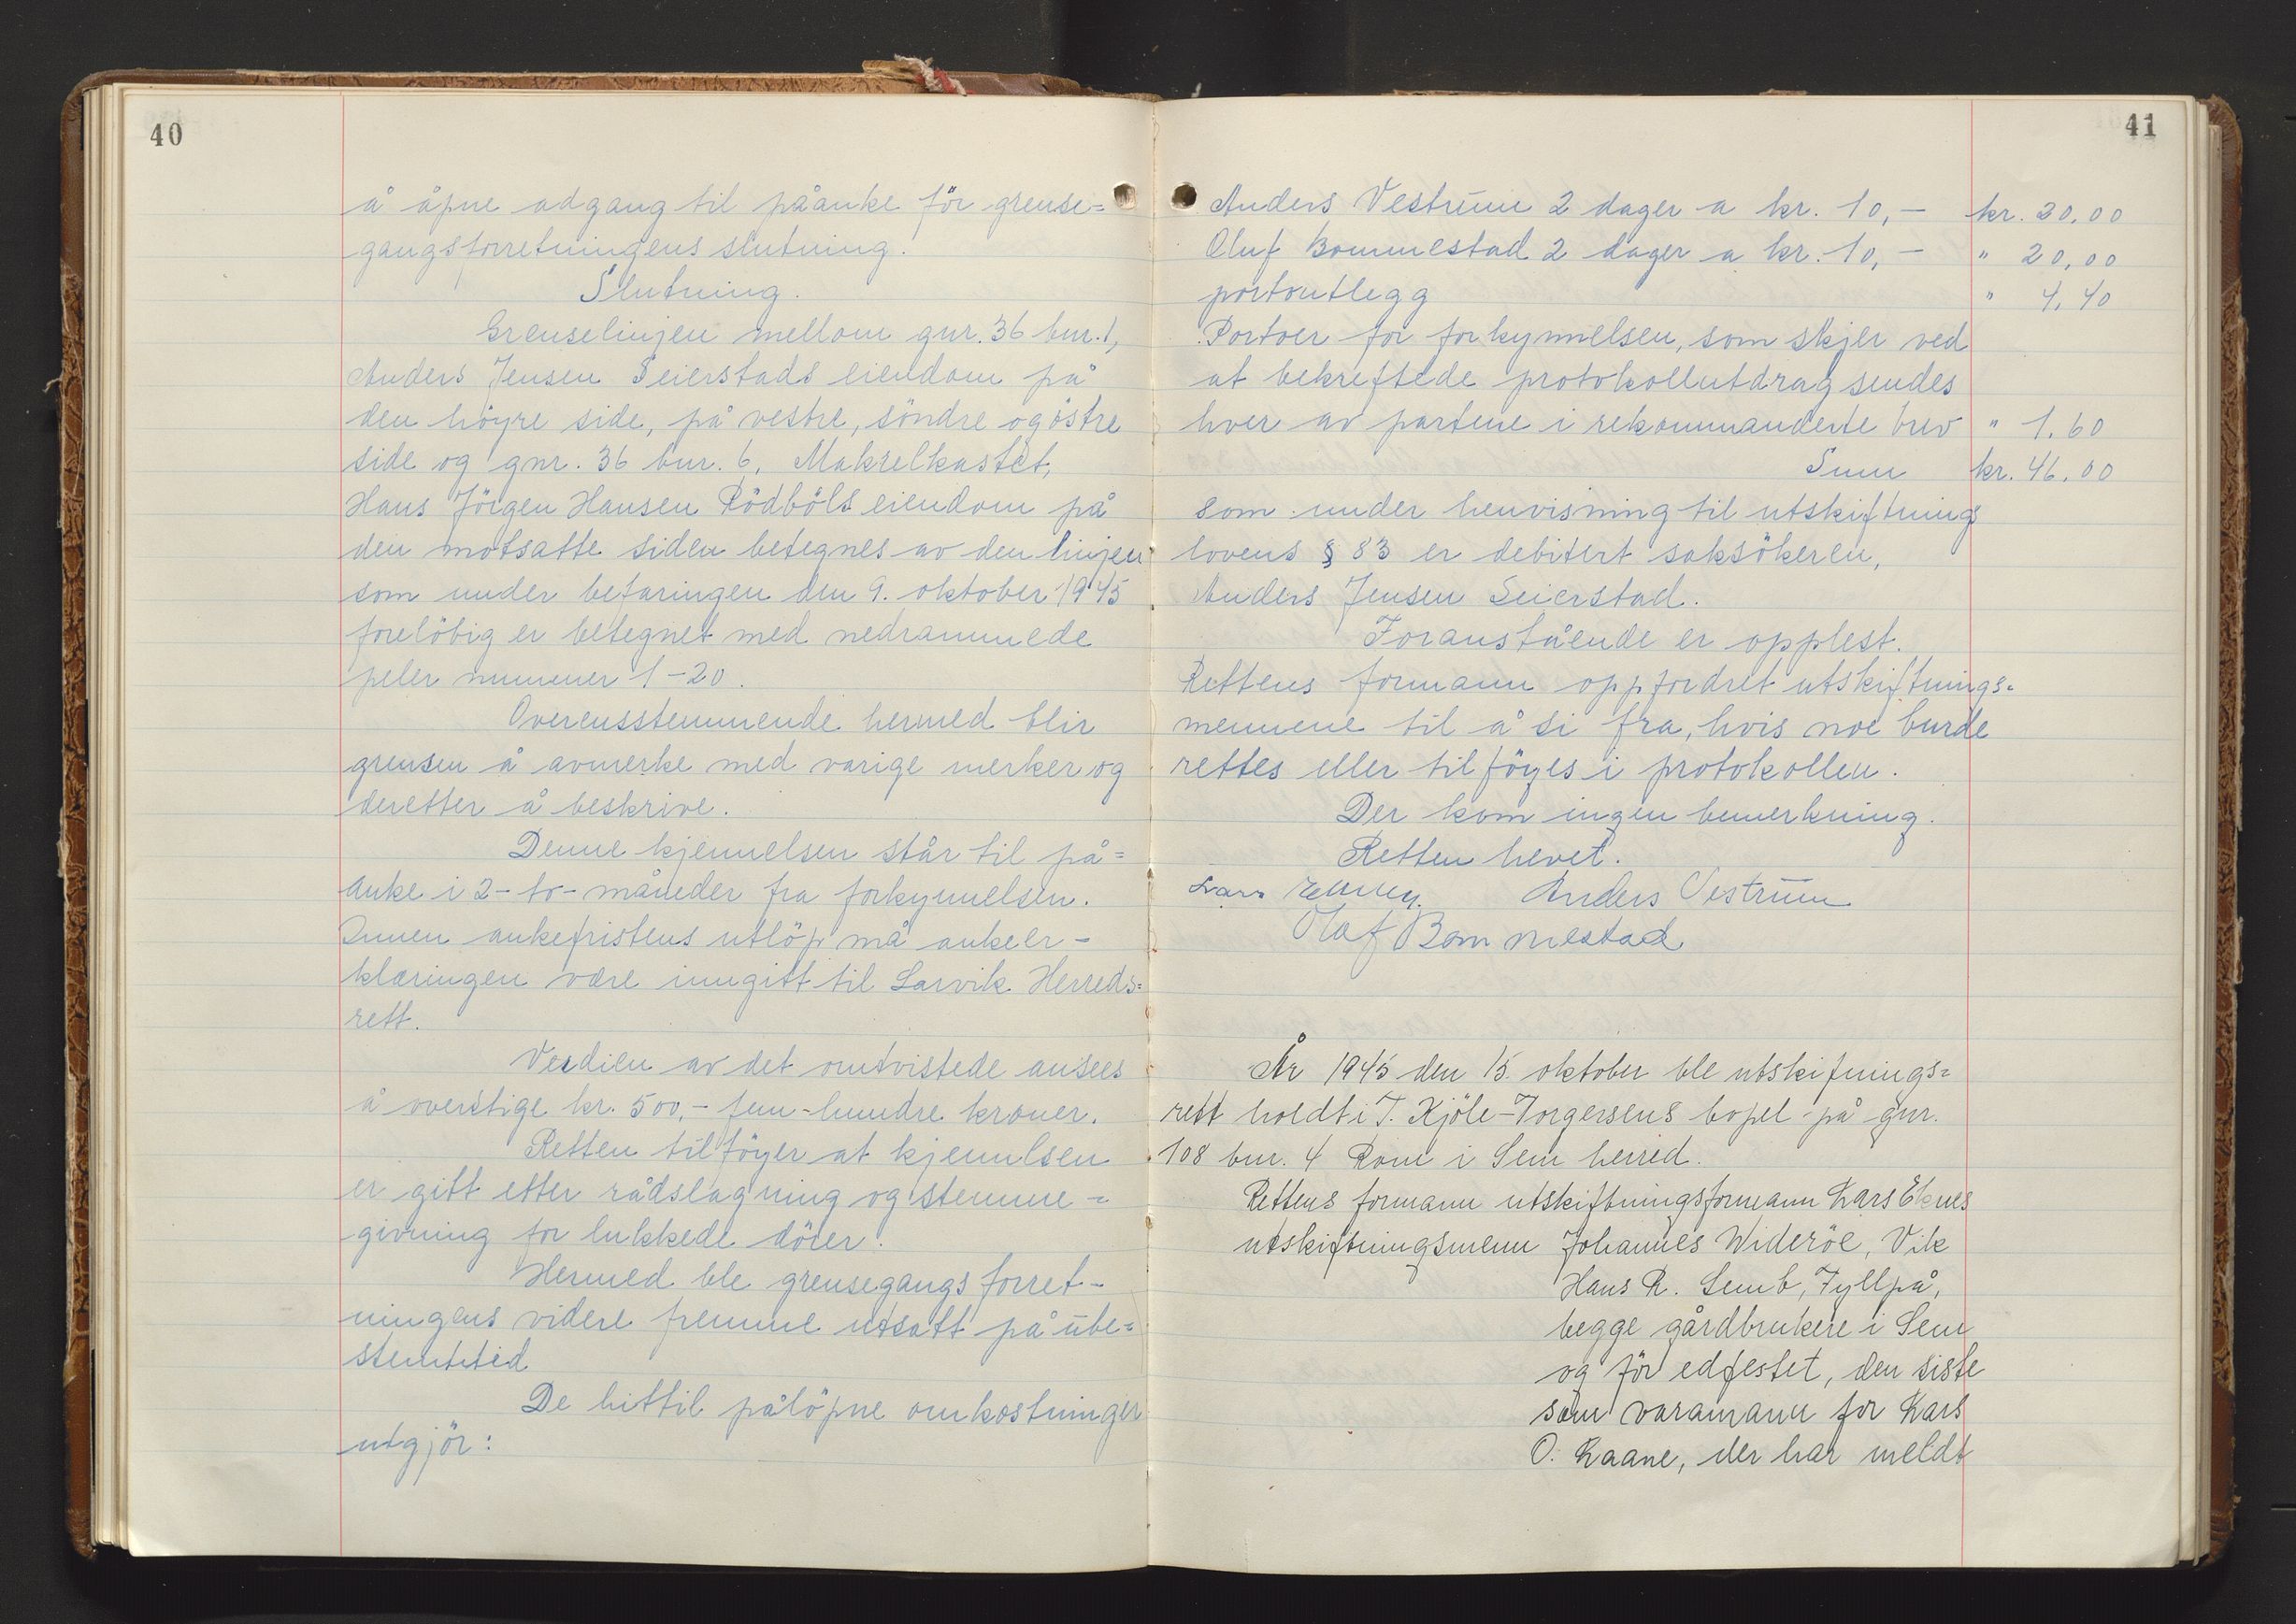 40
å åpne adgang til påanke för grense=
gangsforretningens slutning.
Slutning.
Grenselinjen mellom gnr. 36 bnr. 1,
Anders Jensen Seierstads eiendom på
den höyre side, på vestre, söndre og östre
side og gnr. 36 bnr. 6, Makrelkastet,
Hans Jörgen Hansen Rödböls eiendom på
den motsatte siden betegnes av den linjen
som under befaringen den 9. oktober 1945
forelöbig er betegnet med nedrammede
peler nummer 1-20.
Overensstemmende hermed blir
grensen å avmerke med varige merker og
deretter å beskrive.
Denne kjennelsen står til på=
anke i 2-to-måneder fra forkynnelsen.
Innen ankefristens utlöp må ankeer-
klæringen være inngitt til Larvik Herreds=
rett.
Verdien av det omtvistede ansees
å overstige kr. 500,- fem-hundre kroner.
Retten tilföyer at kjennelsen
er gitt etter rådslagning og stemme-
givning for lukkede dörer.
Hermed ble grensegangsforret-
ningens videre fremme utsatt på ube=
stemt tid
De hittil pålöpne omkostninger
utgjör:
41
Anders Vestrum 2 dager a kr. 10,- kr. 20.00
Oluf Bommestad 2 dager a kr. 10,- " 20,00
portoutlegg " 4,40
Portoer for forkynnelsen, som skjer ved
at bekreftede protokollutdrag sendes
hver av partene i rekommanderte brev " 1.60
Sum kr. 46.00
som under henvisning til utskiftnings
lovens § 83 er debitert saksökeren,
Anders Jensen Seierstad.
Foranstående er opplest.
Rettens formann oppfordret utskiftnings=
mennene til å si fra, hvis noe burde
rettes eller tilföyes i protokollen.
Der kom ingen bemerkning.
Retten hevet.
Lars Eknes. Anders Vestrum
Olaf Bommestad
År 1945 den 15. oktober ble utskifnings=
rett holdt i T. Kjöle-Torgersens bopel på gnr.
108 bnr. 4 Rom i Sem herred.
Rettens formann utskiftningsformann Lars Eknes
utskiftningsmenn Johannes Wideröe, Vik
Hans R. Semb, Fyllpå,
begge gårdbrukere i Sem
og för edfestet, den siste
som varamann for Lars
O. Raane, der har meldt